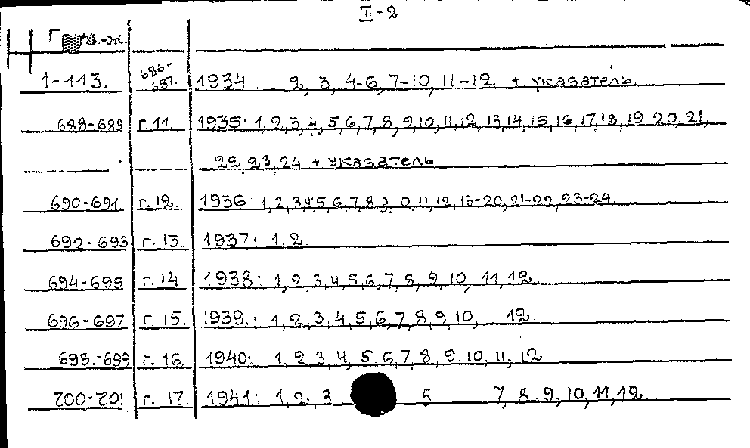 I-2
1-113. 686-687. 1934 2, 3, 4-6, 7-10, 11-12 + указатель.
688-689 г. 11. 1935: 1, 2, 3, 4, 5, 6, 7, 8, 9, 10, 11, 12, 13, 14, 15, 16, 17, 18, 19-20, 21,
22, 23, 24 + указатель
690-691 г. 12. 1936: 1, 2, 3, 4, 5, 6, 7, 8, 9, 10, 11, 12, 13-20, 21-22, 23-24.
692-693 г. 13. 1937: 1, 2.
694-695 г. 14 1938: 1, 2, 3, 4, 5, 6, 7, 8, 9, 10, 11, 12.
696-697 г. 15. 1939.: 1, 2, 3, 4, 5, 6, 7, 8, 9, 10, 12.
698-699 г. 16. 1940: 1, 2, 3, 4, 5, 6, 7, 8, 9, 10, 11, 12
700-701 г. 17. 1941: 1, 2, 3 5 7, 8, 9, 10, 11, 12.